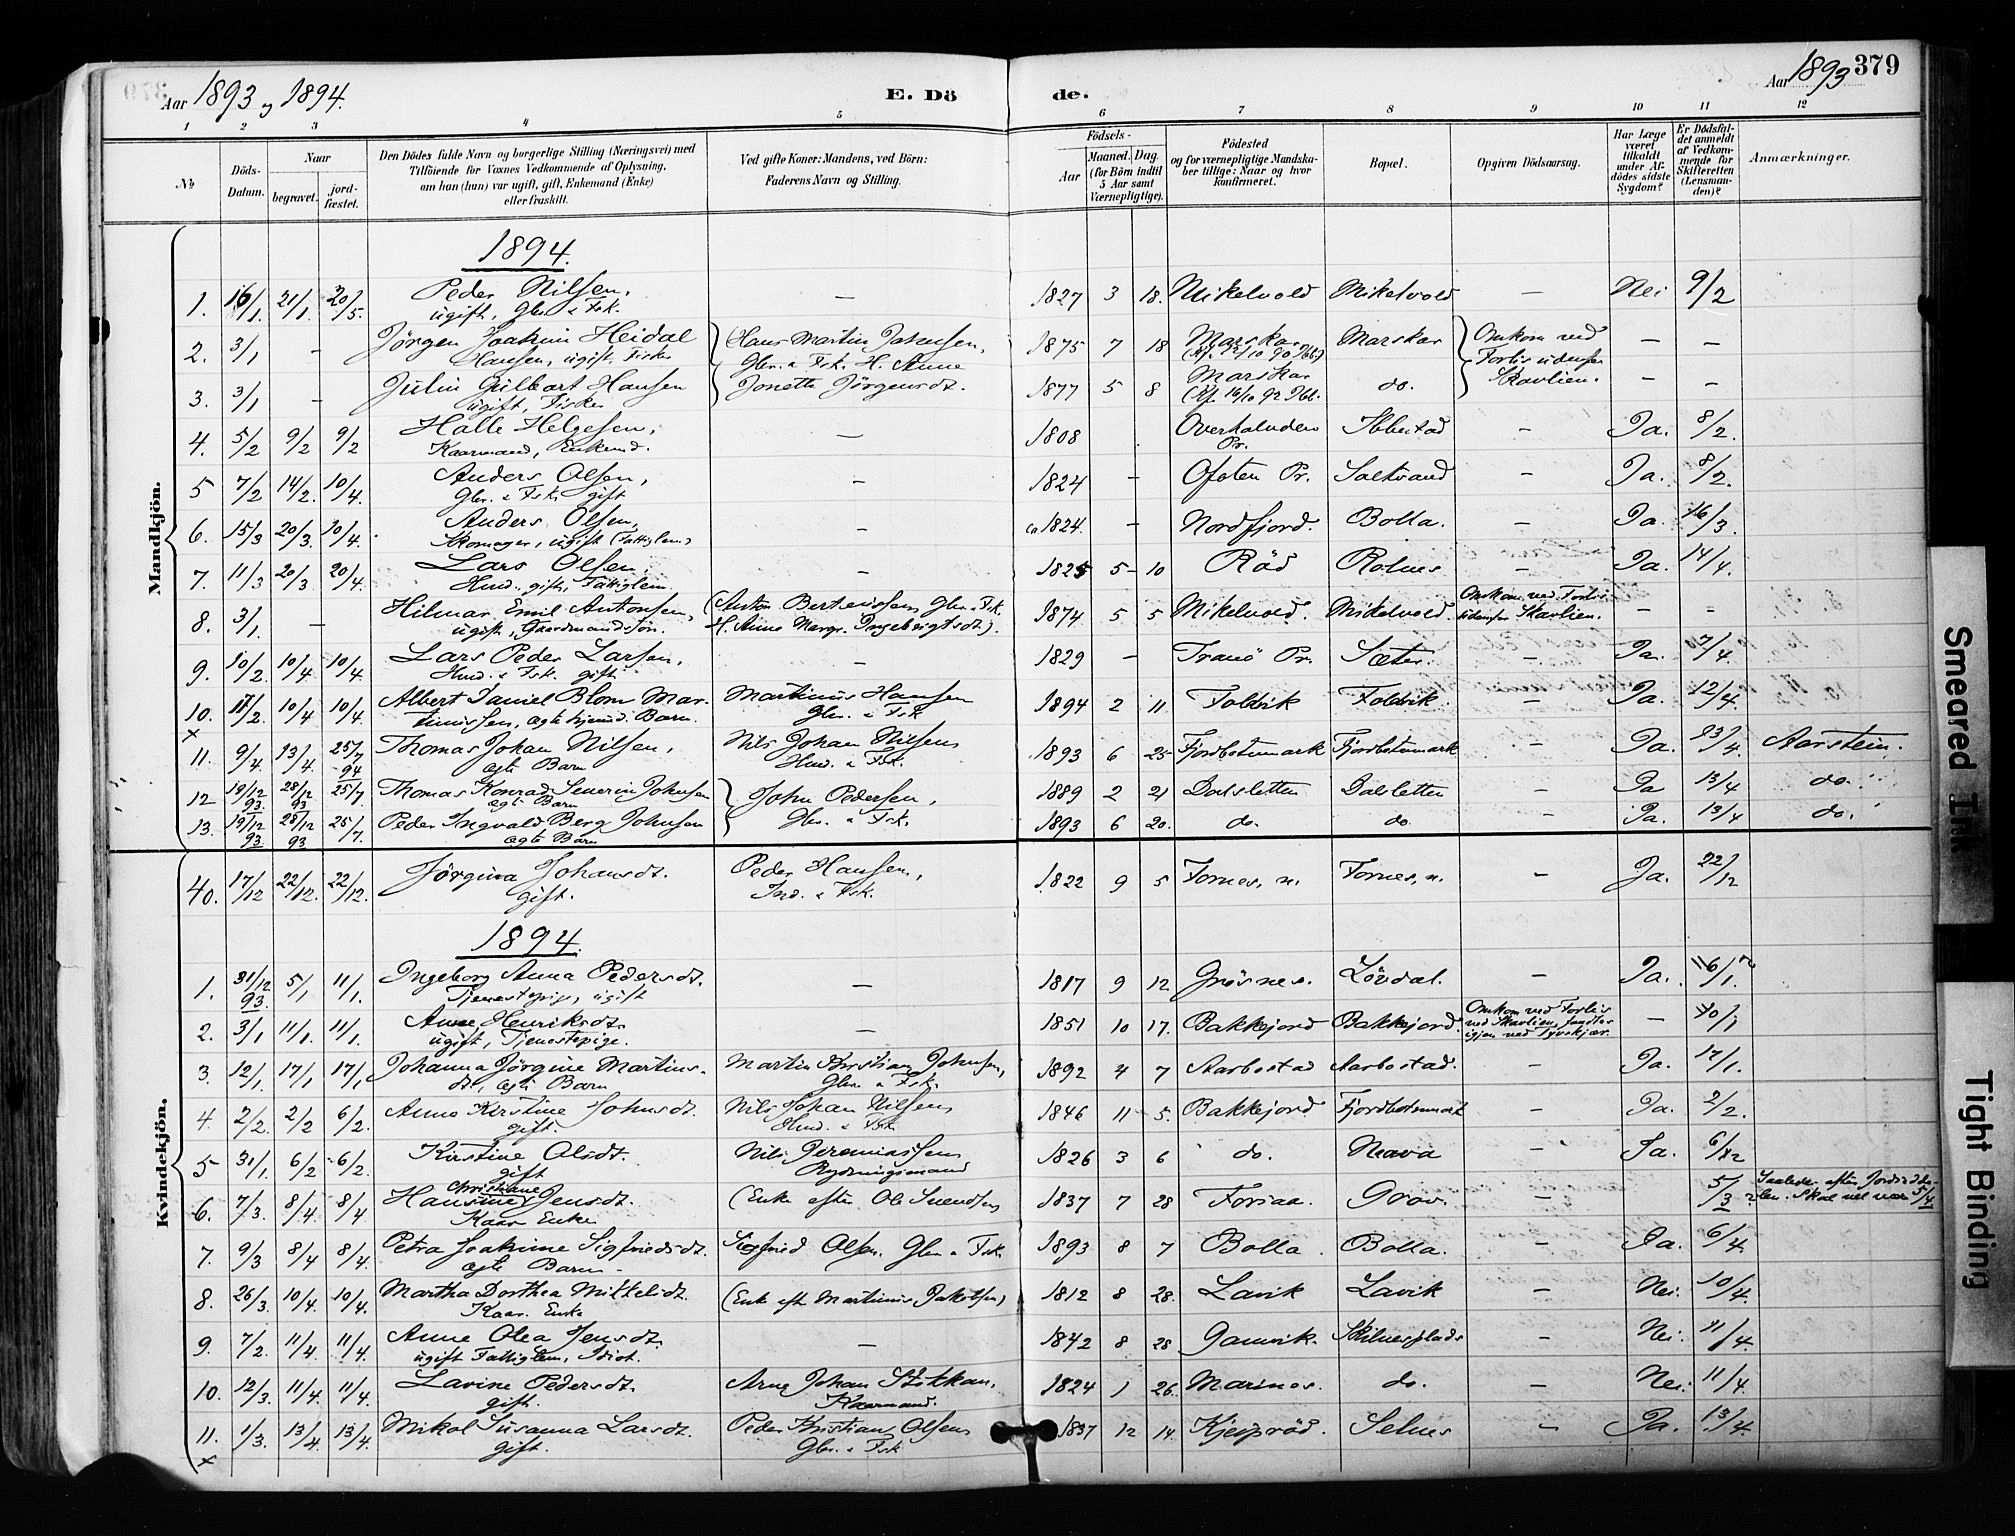 379
Aar 1893 og 1894.
E. Dö de.
Aar 1893
1 2 3 4 5 6 7 8 9 10 11 12
№
Döds-Datum.
Naar
begravet.
jord-fæstet.
Den Dödes fulde Navn og borgerlige Stilling (Næringsvei) med
Tilföiende for Voxnes Vedkommende af Oplysning,
om han (hun) var ugift, gift, Enkemand (Enke)
eller fraskilt.
Ved gifte Koner: Mandens, ved Börn:
Faderens Navn og Stilling.
Födsels-
Aar
Maaned. Dag.
(for Börn indtil
5 Aar samt
Værnepligtige).
Födested
og for værnepligtige Mandska-
ber tillige: Naar og hvor
konfirmeret.
Bopæl.
Opgiven Dödsaarsag.
Har Læge
været
tilkaldt
under Af-
dödes sidste
Sygdom?
Er Dödsfal-
det anmeldt
af Vedkom-
mende for
Skifteretten
(Lensman-
den)?
Anmærkninger.
Mandkjön.
1894.
1. 16/1 21/1 20/5. Peder Nilsen, — 1827 3 18. Mikelvold Mikelvold — Nei 9/2
ugift, Gbr. & Fsk.
2. 3/1 — Jörgen Joakim Heidal Hans Martin Johnsen, 1875 7 18 Marskar Marskar Omkom ved — —
Hansen, ugift, Fisker Gbr. & Fsk. H. Anne Forlis udenfor
3. 3/1 — Julin Gilbart Hansen Jonetta Jörgensdt. 1877 5 8 Marskar do. Skavlien. — —
ugift, Fisker
4. 5/2 9/2 9/2 Halle Helgesen, — 1808 Overhalvden Ibbestad — Ja. 8/2.
Kaarmand, Enkemd. Pr.
5 7/2 14/2. 10/4. Anders Olsen, — 1824 — Ofoten Pr. Saltvand — Ja. 8/2.
Gbr. & Fsk. gift
6. 15/3 20/3. 10/4. Anders Olsen, — ca 1824. — Nordfjord. Bolla. — Ja. 16/3.
Skomager, ugift (Fattiglem)
7. 11/3 20/3 20/4. Lars Olsen, — 1825 5 10 Röd Rolnes — Ja. 14/4.
Hmd. gift, Fattiglem
8. 3/1. — Hilmar Emil Antonsen, (Anton Berteussen Gbr. & Fsk. 1874 5 5 Mikelvold. Mikelvold. Omkom ved Forlis — —
ugift, Gaardmandssön. H. Anne Margr. Ingebrigtsdt). udenfor Skavlien.
9. 10/2. 10/4 10/4 Lars Peder Larsen, — 1829 — Tranö Pr. Sæter. — Ja. 7/4.
Hmd. & Fsk. gift
10. 17/2. 10/4 10/4. Albert Daniel Blom Mar- Martinus Hansen 1894 2 11 Foldvik Foldvik — Ja. 12/4.
tinussen, ægte hjemd. Barn. Gbr. & Fsk
11. 9/4. 13/4. 25/7 94 Thomas Johan Nilsen, Nils Johan Nilsen 1893 6 25 Fjordbotnmark Fjordbotnmark — Ja. 23/4. Aarstein.
ægte Barn Hmd. & Fsk.
12 19/12 93. 28/12 93 25/7 Thomas Konrad Severin Johnsen John Pedersen, 1889 2 21 Dalsletten Dalsletten — Ja 13/4 do.
ægte Barn Gbr. & Fsk.
13. 19/12 93 28/12 93 25/7. Peder Ingvald Berg Johnsen 1893 6 20. do. do — Ja. 13/4 do.
ægte Barn
Kvindekjön.
40. 17/12 22/12. 22/12. Jörgina Johansdt. Peder Hansen, 1822 9 5 Fornes, n. Fornes, n. — Ja. 22/12
gift. Ind. & Fsk.
1894.
1. 31/12 93. 5/1 11/1. Ingeborg Anna Pedersdt. — 1817 9 12 Grösnes. Lövdal. — Ja. 16/1.
Tjenestepige, ugift
2. 3/1 11/1. 11/1. Anne Henriksdt. — 1851 10 17. Bakkejord Bakkejord. Omkom ved Forlis — 10/1
ugift, Tjenestepige. ved Skavlien, fandtes
igjen ved Tyvskjær.
3. 12/1. 17/1 17/1 Johanna Jörgine Martins- Martin Kristian Johnsen, 1892 4 7 Aarbostad Aarbostad. — Ja. 17/1.
dt., ægte Barn Gbr. & Fsk.
4. 2/2. 2/2 6/2. Anne Kirstine Johnsdt. Nils Johan Nilsen 1846 11 5. Bakkejord Fjordbotnmark — Ja. 2/2.
gift. Hmd. & Fsk
5 31/1. 6/2 6/2. Kirstine Olsdt. Nils Jeremiassen 1826 3 6 do. Naava — Ja. 6/12
gift Rydningsmand
Christiane
6. 7/3. 8/4 8/4 Hansine Jensdt. (Enke efter Ole Svendsen 1837 7 28 Forsaa. Grov. — 5/3 ? Saaledes efter Jordeddde-
Kaar Enke len. Skal vel være 5/4
7. 9/3 8/4 8/4. Petra Joakime Sigfriedsdt. Sigfried Olsen. Gbr. & Fsk. 1893 8 7 Bolla. Bolla. — Ja. 6/4.
ægte Barn
8. 26/3. 10/4. 10/4. Martha Dorthea Mikkelsdt. (Enke eft Martinus Jakobsen) 1812 8 28. Lavik Lavik — Nei. 10/4.
Kaar. Enke
9. 7/2. 11/4. 11/4. Anne Olea Jensdt. — 1842 8 28 Gamvik. Skilnesplads — Nei. 11/4.
ugift Fattiglem, Idiot.
10. 12/3. 11/4. 11/4. Lavine Pedersdt. Arne Johan Stokkan, 1824 1 26. Marines. do. — Nei. 11/4.
gift. Kaarmand.
11. 1/3. 13/4. 13/4. Mikol Susanna Larsdt. Peder Kristian Olsen 1837 12 14. Kjeiprød. Selnes — Ja. 13/4.
gift. Gbr. & Fsk
Smeared Ink
Tight Binding